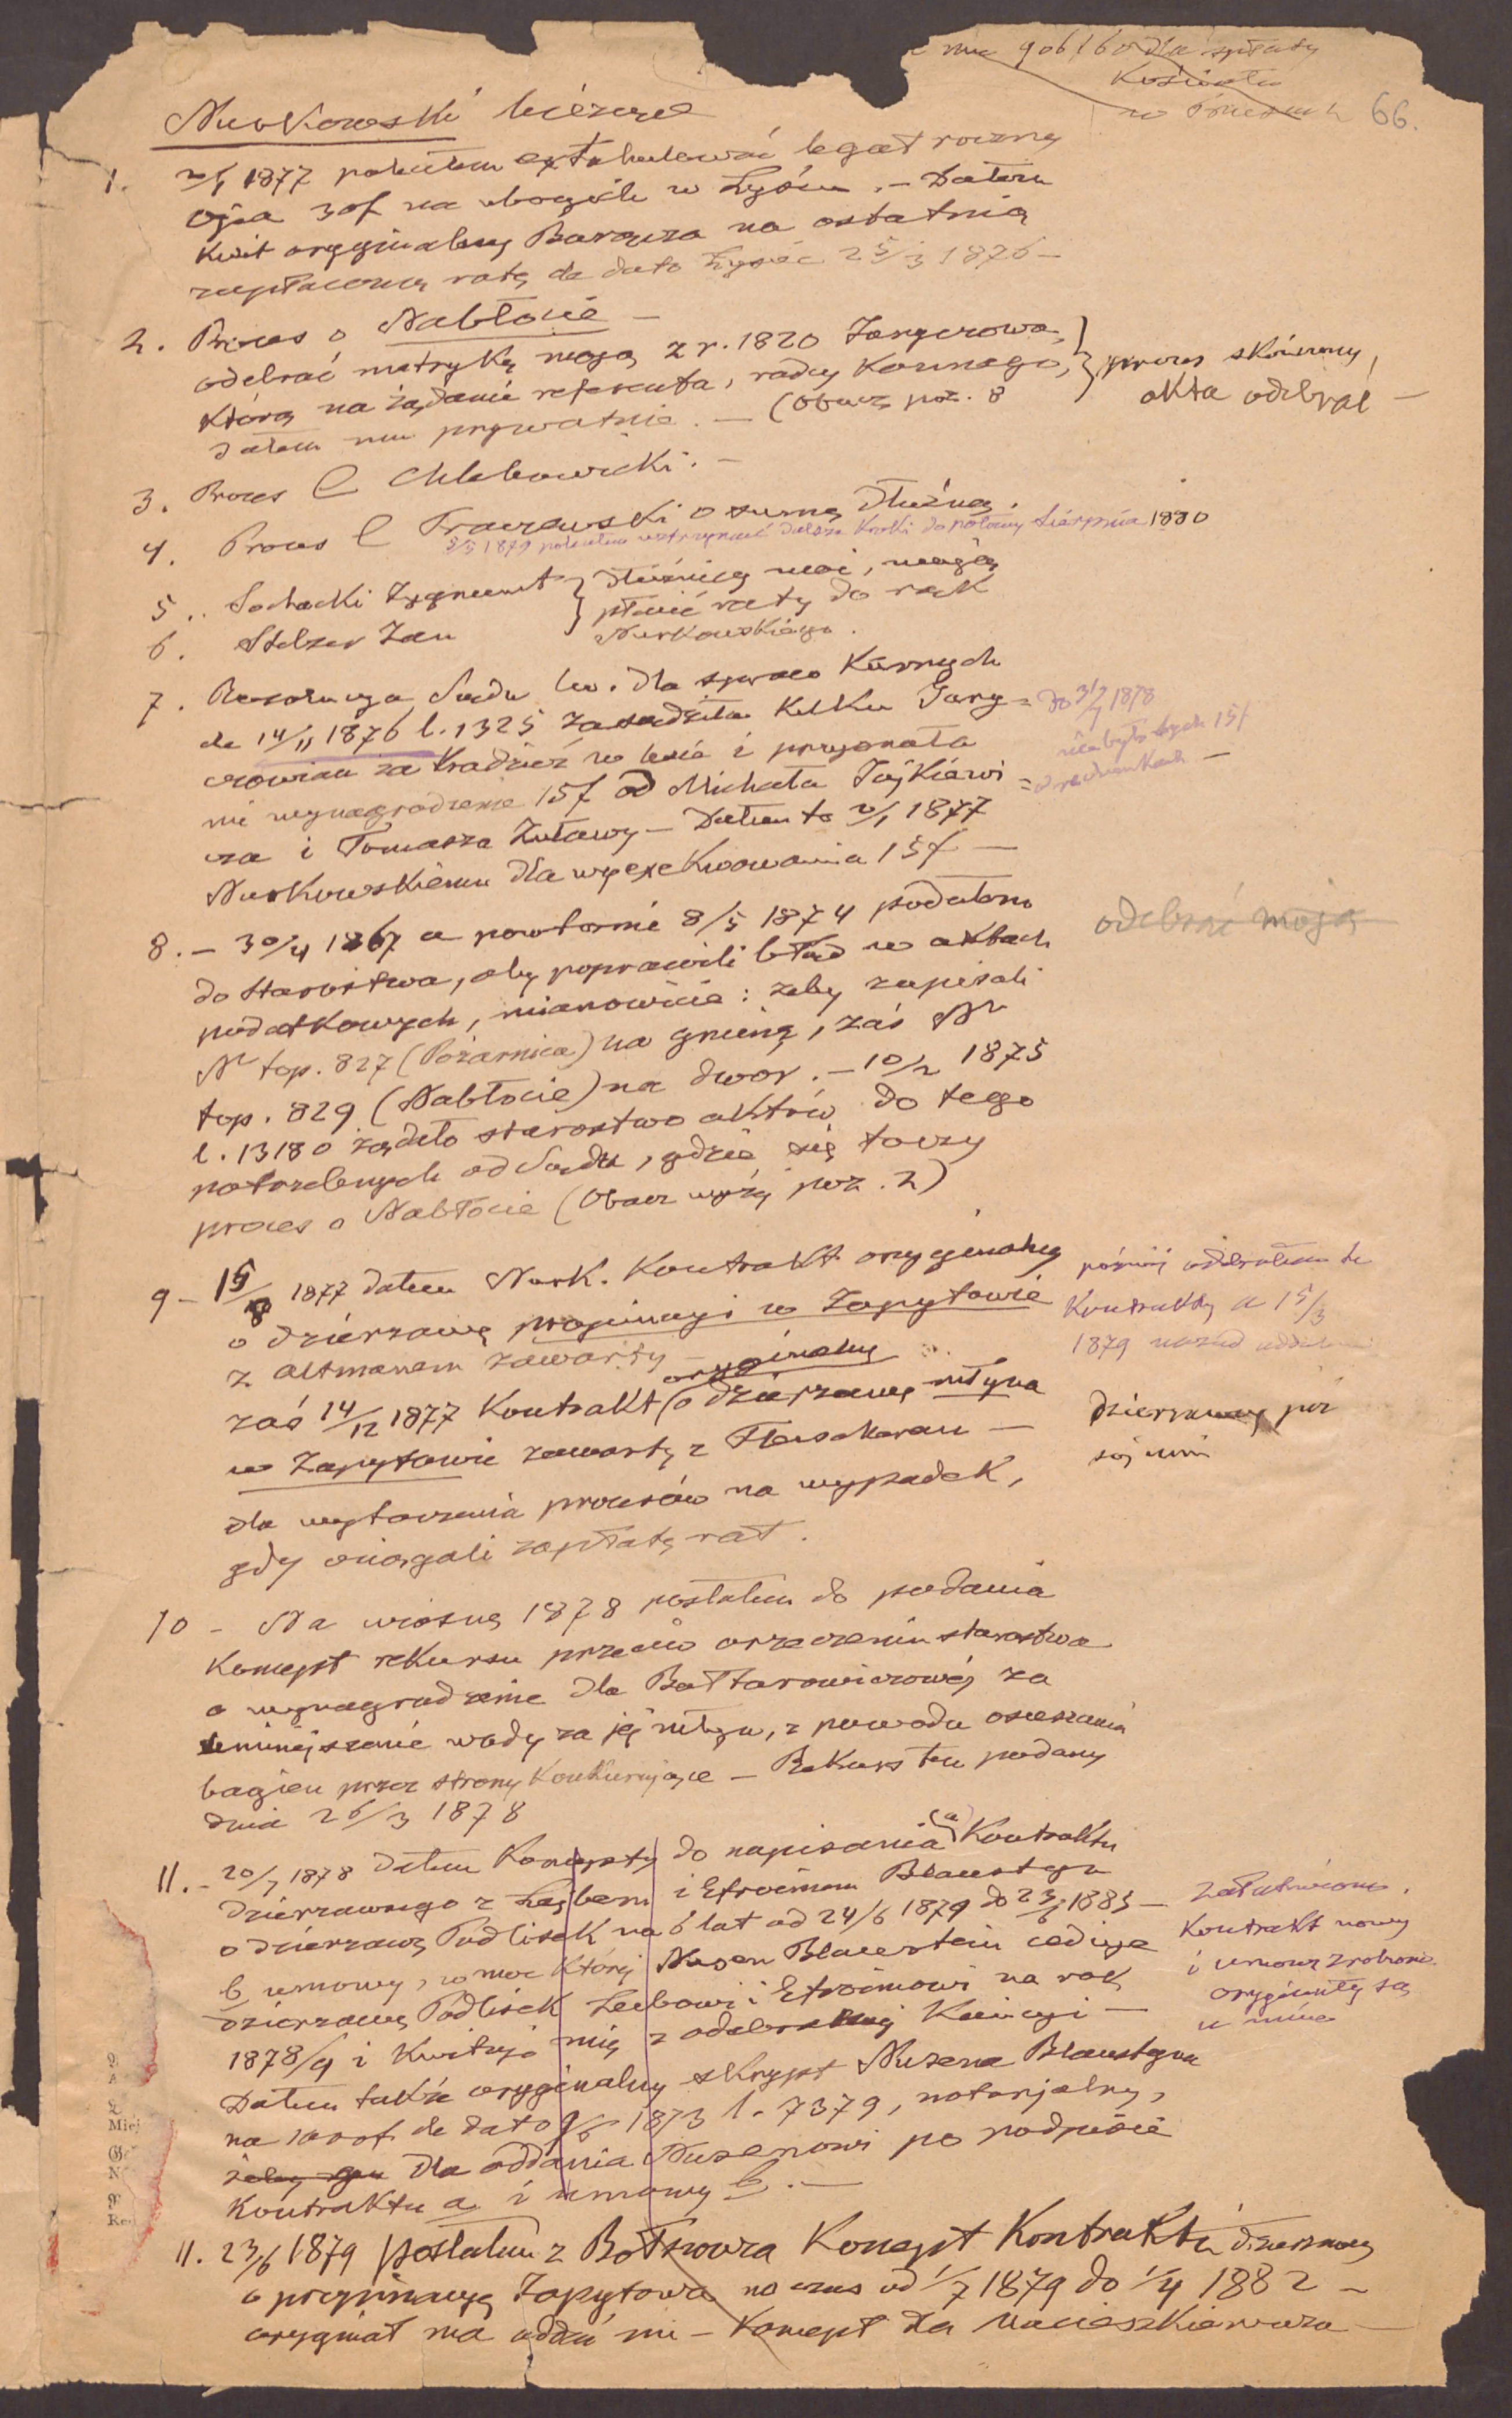 66.
Nurkowski bieżące
1. 2/1 1877 poleciłem extabulować legat roczny
ojca 30f na ubogich w Łysou. – Dałem
kwit oryginalny Barącza na ostatnią
zapłaconą ratę de dato 25/3 1876 –
2. Proces o Nabłocie –
odebrać matrykę moją z r. 1820 Jaryczowa,
którą na żądanie referenta, radcy Kornego,
dałem mu prywatnie. – (Obacz poz. 8
} proces skończony,
akta odebrał –
3. Proces C Chlebowicki. –
4. Proces C Traczewski o sumę dłużną.
3/3 1879 poleciłem wstrzymać dalsze kroki do połowy sierpnia 1880
5. Sochacki Zygmunt } dłużnicy moi, mogą
płacić raty do rąk
6. Stelzer Jan Nurkowskiego.
7. Rezolucya Sądu lw. dla spraw karnych
de 14/11 1876 l. 1325 zasądziła kilku Jary-
czowian za kradzież w lesie i przyznała
mi wynagrodzenie 15f od Michała Tajkiewi-
cza i Tomasza Żuławy – Dałem to 2/1 1877
Nurkowskiemu dla wyexekwowania 15f –
do 31/7 1878
nie było tych 15f
w rachunkach –
8. – 30/4 1867 a powtórnie 8/5 1874 podałem
do starostwa, aby poprawili błąd w aktach
podatkowych, mianowicie: żeby zapisali
Nr top. 827 (Pożarnica) na gminę, zaś Nr
top. 829 (Nabłocie) na dwór. – 10/2 1875
l. 13180 żądało starostwo aktów do tego
potrzebnych od Sądu, gdzie się toczy
proces o Nabłocie (Obacz wyżej poz. 2)
odebrać moją
9 – 15/8 1877 dałem Nurk. Kontrakt oryginalny
o dzierżawę propinacyi w Zapytowie
z Altmanem zawarty –
zaś 14/12 1877 Kontrakt (oryginalny o dzierżawę młyna
w Zapytowie zawarty z –
dla wytoczenia procesów na wypadek,
gdy ociągali zapłatę rat.
później odebrałem te
Kontrakty a 15/3
1879 nazad
10 – Na wiosnę 1878 posłałem do podania
Koncept rekursu przeciw orzeczeniu starostwa
o wynagrodzenie dla Bałtarowiczowej za
umniejszenie wody za jej młyn, z powodu osuszania
bagien przez strony konkurujące – Rekurs ten podany
dnia 26/3 1878
11. – 20/7 1878 dałem Koncepty do napisania (a) Kontraktu
dzierżawnego z Lejbem i Efroimem Blaustein
o dzierżawę Podlisek na 6 lat od 24/6 1879 do 23/6 1885 –
b, umowy, w moc której Nusen Blaustein ceduje
dzierżawę Podlisek Leibowi i Efroimowi na rok
1878/9 i kwituje mię z odebranej Kaucyi –
Dałem także oryginalny skrypt Nusena Blausteina
na 1000f de dato 9/6 1873 l. 7379, notarjalny,
dla oddania Nusenowi po podpisie
Kontraktu a i umowy b. –
załatwione.
Kontrakt nowy
i umowę zrobiono
oryginały są
u mnie
11. 23/6 1879 posłałem z Koncept Kontraktu dzierżawy
o propinacyę Zapytowa na czas od 1/7 1879 do 1/4 1882 –
oryginał ma oddać mi – Koncept dla Macieszkiewicza –